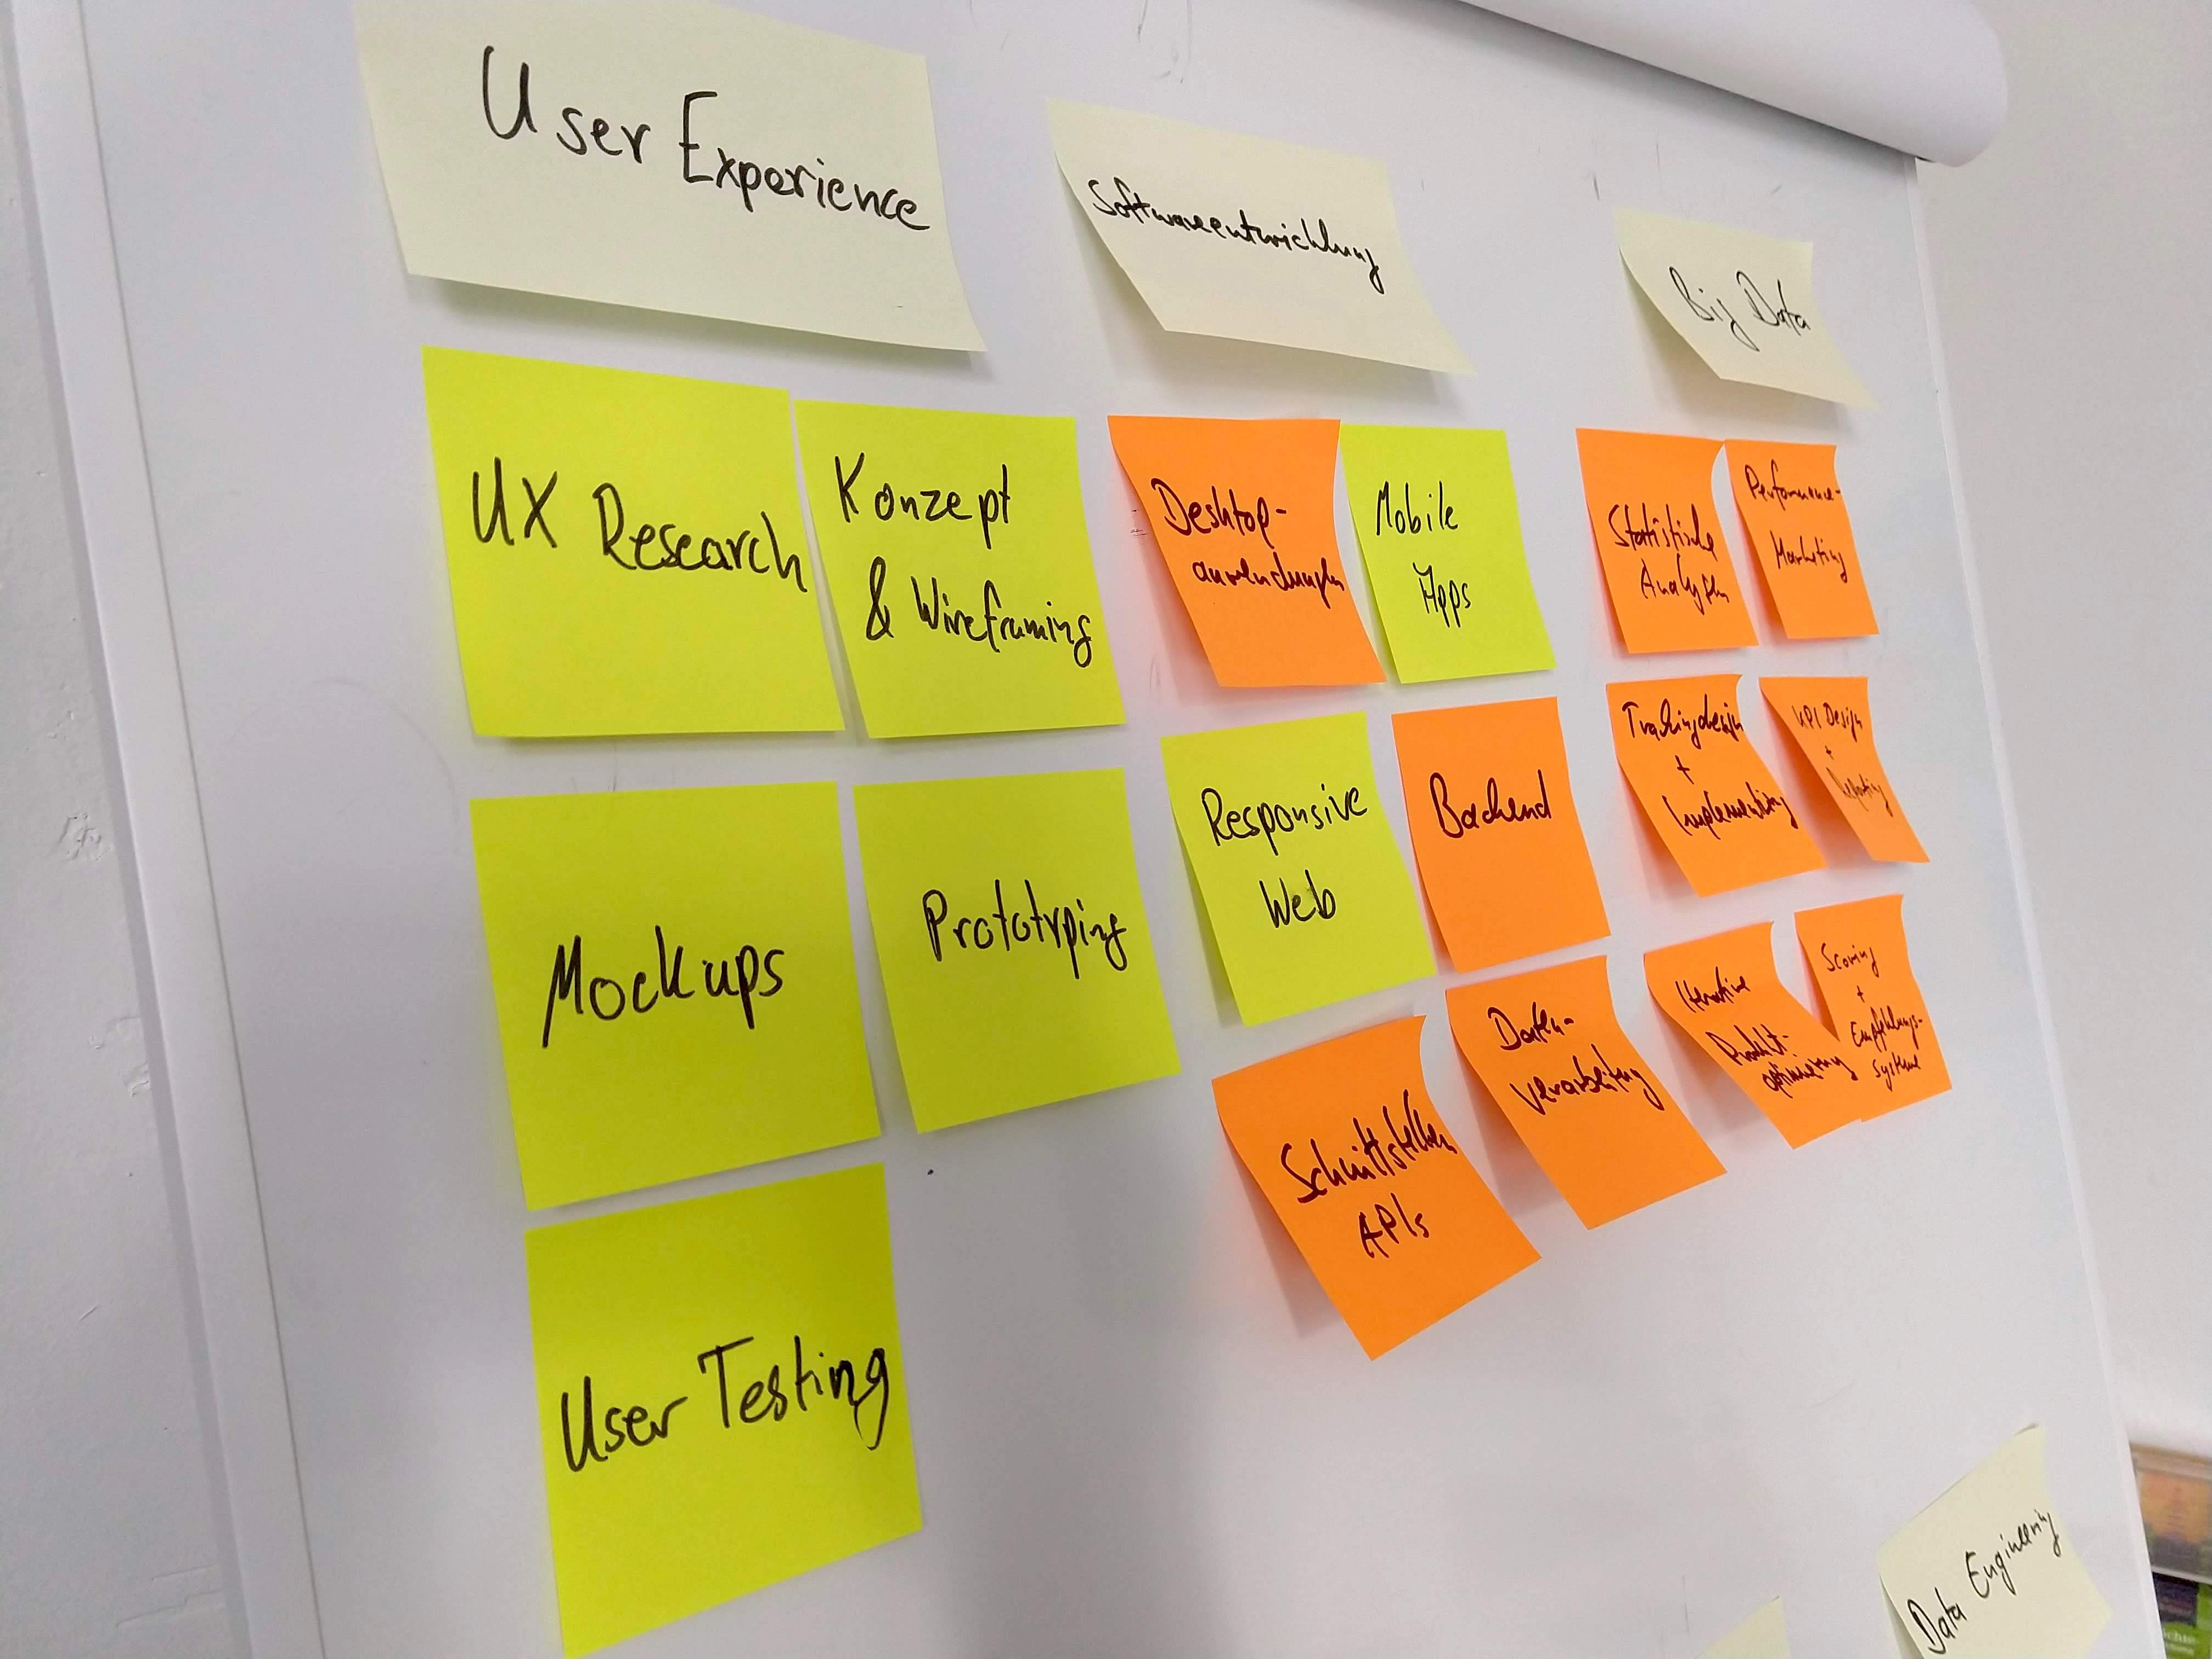 User Experience
Softwareentwicklung
Big Data
UX Research
Konzept
& Wireframing
Mockups
Prototyping
User Testing
Desktop-
anwendungen
Mobile
Apps
Responsive
Web
Backend
Schnittstellen
APIs
Daten-
verarbeitung
Statistische
Analysen
Performance-
Marketing
Trackingdesign
+
Implementierung
KPI Design
+
Reporting
Iterative
Produkt-
optimierung
Scoring
+
Empfehlungs-
systeme
Data Engineering